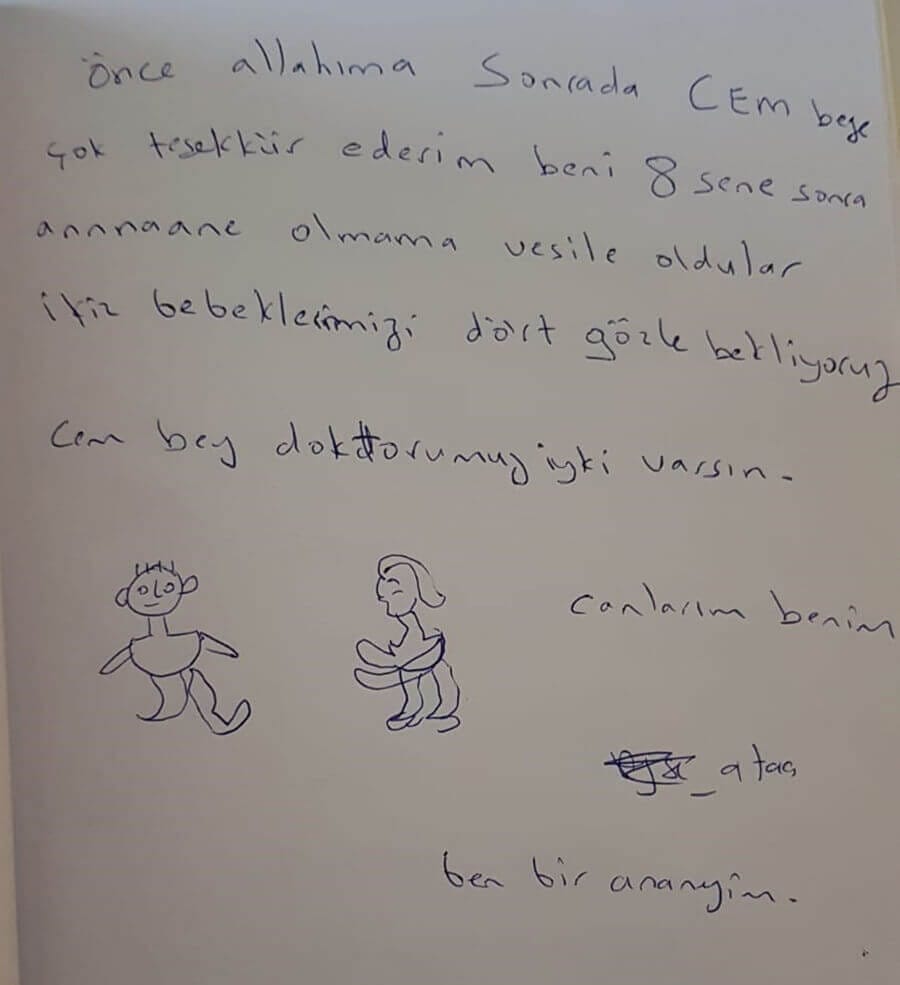 önce allahıma Sonrada CEM beye
çok teşekkür ederim beni 8 sene sonra
annnaane olmama vesile oldular
ikiz bebeklerimizi dört gözle bekliyoruz
Cem bey doktorumuz iyki varsın.
canlarım benim
_ataç
ben bir ananyim.